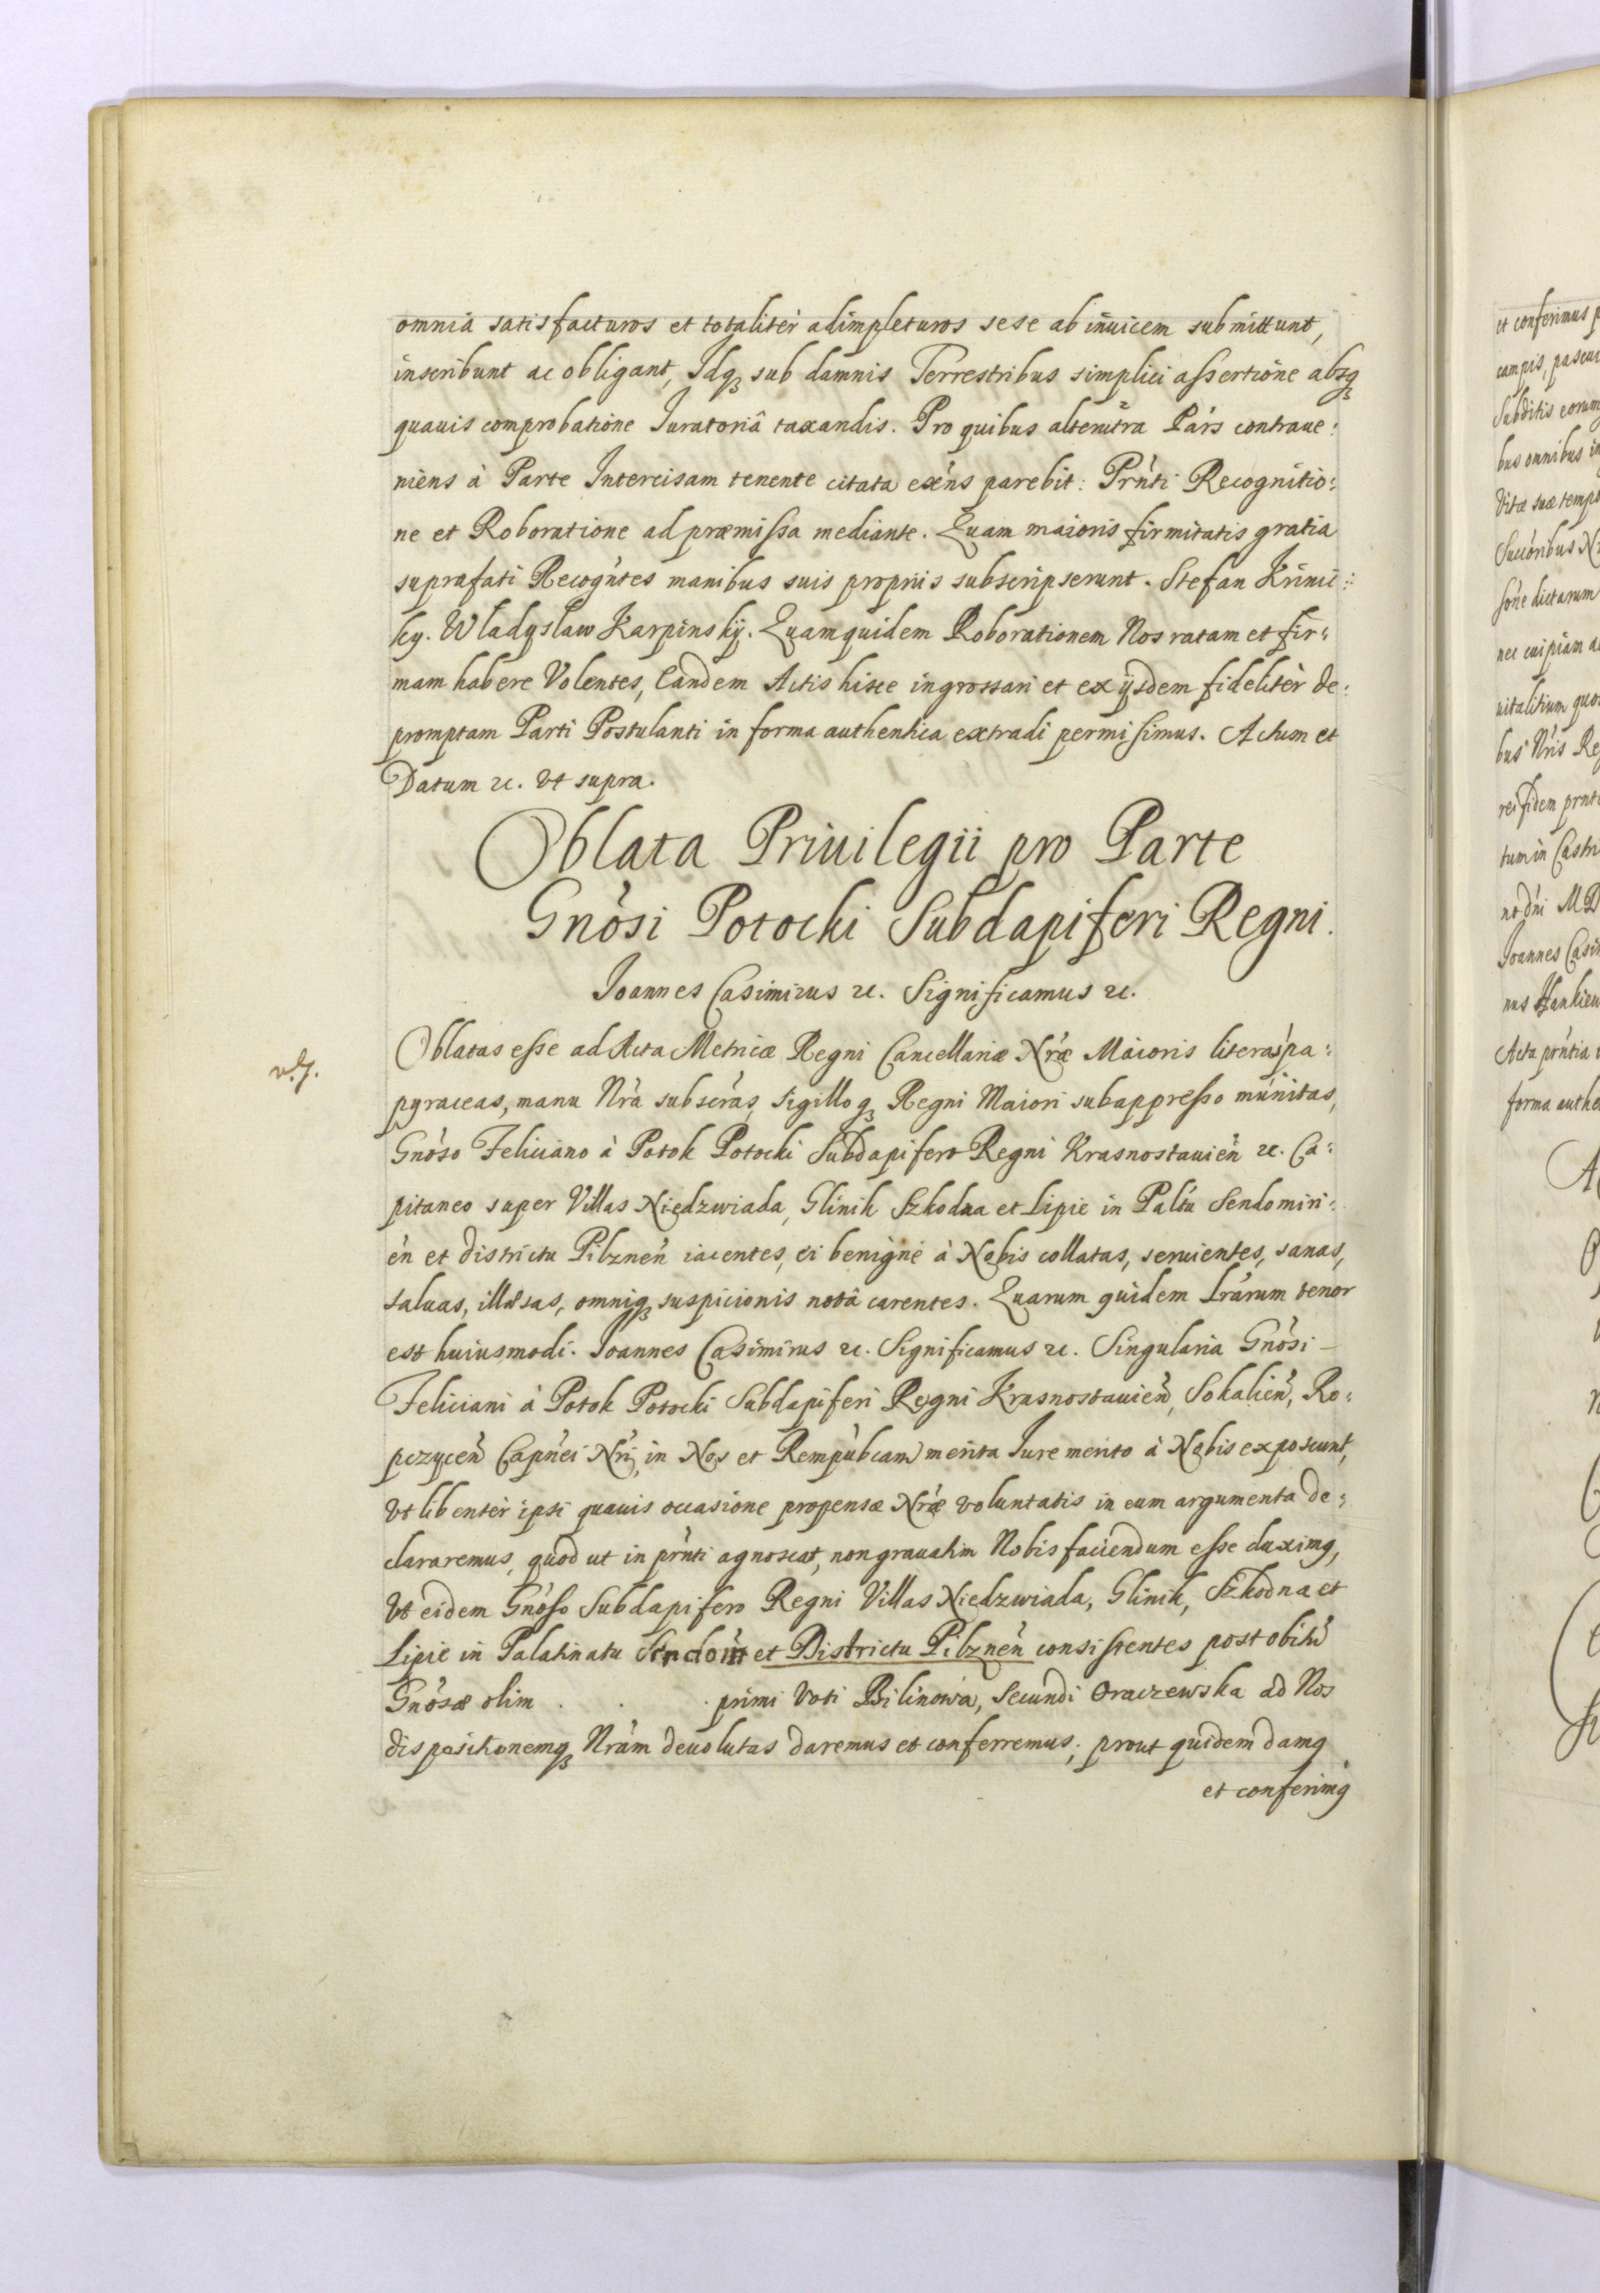 omnia satisfacturos et totaliter adimpleturos sese ab inuicem submittunt,
inscribunt ac obligant, Idq₃ sub damnis Terrestribus simplici assertione absq₃
quauis comprobatione Iuratoriâ taxandis. Pro quibus alterutra Pars contraue:
niens à Parte Intercisam tenente citata exe̔ns parebit: Prn̔ti Recognitio:
ne et Roboratione ad præmissa mediante. Quam maioris firmitatis gratia
suprafati Recogn̔tes manibus suis proprijs subscripserunt. Stefan Krinic:
ky. Władysław Karpinskij. Quamquidem Roborationem Nos ratam et fir:
mam habere Volentes, Eandem Actis hisce ingrossari et ex ijsdem fideliter de:
promptam Parti Postulanti in forma authentica extradi permisimus. Actum et
Datum ꝛc. Vt supra.
Oblata Priuilegii pro Parte
Gnòsi Potocki Subdapiferi Regni.
Joannes Casimirus ꝛc. Significamus ꝛc.
v.g.
Oblatas esse ad Acta Metricæ Regni Cancellariæ Nræ Maioris literas pa:
pyraceas, manu Nrà subscràs, sigilloq₃ Regni Maiori subappresso munitas,
Gnòso Feliciano à Potok Potocki Subdapifero Regni Krasnostauien̔ ꝛc. Ca:
pitaneo super Villas Niedzwiada, Glinik Szkodna et Lipie in Paltu Sendomiri:
en̔ et districtu Pilznen̔ iacentes, ei benigne à Nobis collatas, seruientes, sanas,
saluas, illæsas, omniq₃ suspicionis notâ carentes. Quarum quidem Lrarum tenor
est huiusmodi. Joannes Casimirus ꝛc. Significamus ꝛc. Singularia Gnòsi
Feliciani à Potok Potocki Subdapiferi Regni Krasnostauien̔, Sokalien̔, Ro:
pczycen̔ Capnei Nri, in Nos et Rempùbcam merita Jure merito à Nobis exposcunt,
Vt libenter ipsi quauis occasione propensæ Nræ voluntatis in eum argumenta de:
clararemus, quod ut in prn̔ti agnoscat, non grauatim Nobis faciendum esse duximq,
Vt eidem Gnòso Subdapifero Regni Villas Niedzwiada, Glinik, Szkodna et
Lipie in Palatinatu Sendom̔ et Districtu Pilznen̔ consistentes post obitu̔
Gnòsæ olim . . . primi Voti Bilinowa, Secundi Oraczewska ad Nos
dispositionemq₃ Nràm deuolutas daremus et conferremus; prout quidem damq
et conferimq